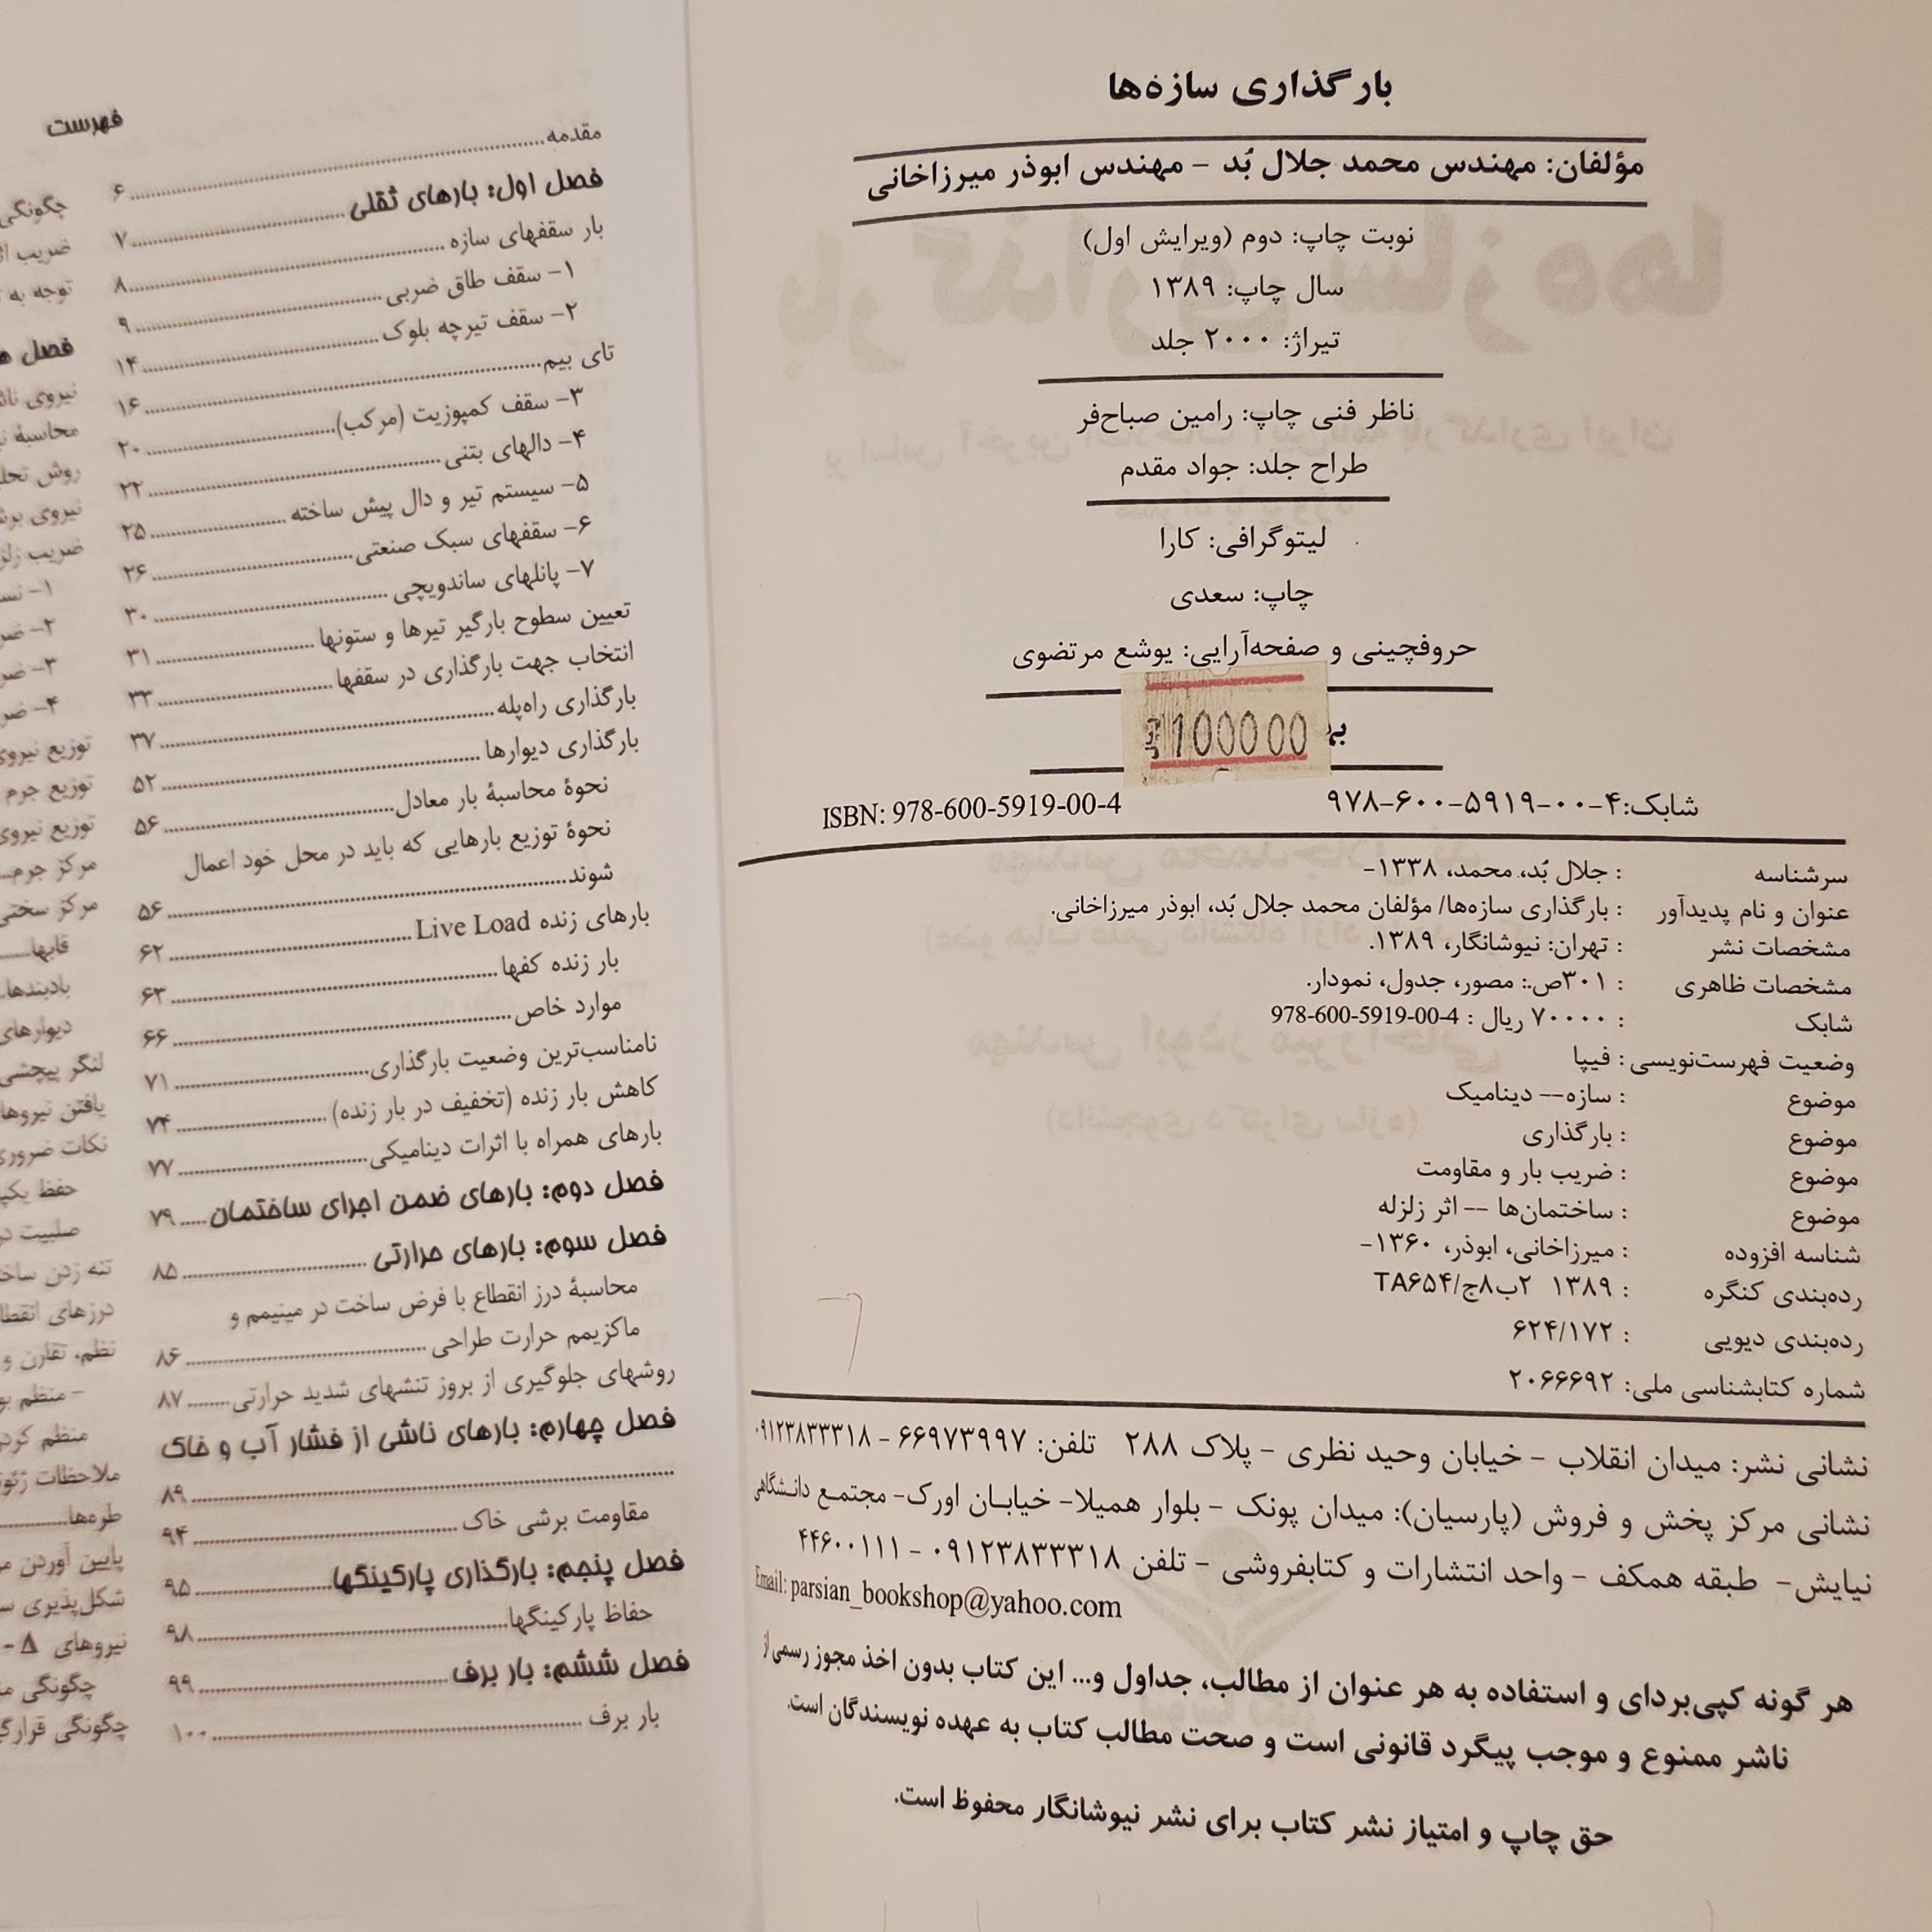 بارگذاری سازه‌ها
مؤلفان: مهندس محمد جلال بُد - مهندس ابوذر میرزاخانی
نوبت چاپ: دوم (ویرایش اول)
سال چاپ: ۱۳۸۹
تیراژ: ۲۰۰۰ جلد
ناظر فنی چاپ: رامین صباح‌فر
طراح جلد: جواد مقدم
لیتوگرافی: کارا
چاپ: سعدی
حروفچینی و صفحه‌آرایی: یوشع مرتضوی
100000 ریال
شابک:۴-۰۰-۵۹۱۹-۶۰۰-۹۷۸ ISBN: 978-600-5919-00-4
سرشناسه : جلال بُد، محمد، ۱۳۳۸-
عنوان و نام پدیدآور : بارگذاری سازه‌ها/ مؤلفان محمد جلال بُد، ابوذر میرزاخانی.
مشخصات نشر : تهران: نیوشانگار، ۱۳۸۹.
مشخصات ظاهری : ۳۰۱ص.: مصور، جدول، نمودار.
شابک : ۷۰۰۰۰ ریال : 978-600-5919-00-4
وضعیت فهرست‌نویسی : فیپا
موضوع : سازه-- دینامیک
موضوع : بارگذاری
موضوع : ضریب بار و مقاومت
موضوع : ساختمان‌ها -- اثر زلزله
شناسه افزوده : میرزاخانی، ابوذر، ۱۳۶۰-
رده‌بندی کنگره : ۱۳۸۹ ۲ب۸ج/TA۶۵۴
رده‌بندی دیویی : ۶۲۴/۱۷۲
شماره کتابشناسی ملی: ۲۰۶۶۶۹۲
نشانی نشر: میدان انقلاب - خیابان وحید نظری - پلاک ۲۸۸ تلفن: ۶۶۹۷۳۹۹۷ - ۰۹۱۲۳۸۳۳۳۱۸
نشانی مرکز پخش و فروش (پارسیان): میدان پونک - بلوار همیلا- خیابان اورک- مجتمع دانشگاهی
نیایش- طبقه همکف - واحد انتشارات و کتابفروشی - تلفن ۰۹۱۲۳۸۳۳۳۱۸ - ۴۴۶۰۰۱۱۱
Email: parsian_bookshop@yahoo.com
هر گونه کپی‌بردای و استفاده به هر عنوان از مطالب، جداول و... این کتاب بدون اخذ مجوز رسمی از
ناشر ممنوع و موجب پیگرد قانونی است و صحت مطالب کتاب به عهده نویسندگان است.
حق چاپ و امتیاز نشر کتاب برای نشر نیوشانگار محفوظ است.
فهرست
مقدمه ۶
فصل اول: بارهای ثقلی ۷
بار سقفهای سازه ۸
۱- سقف طاق ضربی ۹
۲- سقف تیرچه بلوک ۱۴
تای بیم ۱۶
۳- سقف کمپوزیت (مرکب) ۲۰
۴- دالهای بتنی ۲۲
۵- سیستم تیر و دال پیش ساخته ۲۵
۶- سقفهای سبک صنعتی ۲۶
۷- پانلهای ساندویچی ۳۰
تعیین سطوح بارگیر تیرها و ستونها ۳۱
انتخاب جهت بارگذاری در سقفها ۳۳
بارگذاری راه‌پله ۳۷
بارگذاری دیوارها ۵۲
نحوۀ محاسبۀ بار معادل ۵۶
نحوۀ توزیع بارهایی که باید در محل خود اعمال
شوند ۵۶
بارهای زنده Live Load ۶۲
بار زنده کفها ۶۳
موارد خاص ۶۶
نامناسب‌ترین وضعیت بارگذاری ۷۱
کاهش بار زنده (تخفیف در بار زنده) ۷۴
بارهای همراه با اثرات دینامیکی ۷۷
فصل دوم: بارهای ضمن اجرای ساختمان ۷۹
فصل سوم: بارهای حرارتی ۸۵
محاسبۀ درز انقطاع با فرض ساخت در مینیمم و
ماکزیمم حرارت طراحی ۸۶
روشهای جلوگیری از بروز تنشهای شدید حرارتی ۸۷
فصل چهارم: بارهای ناشی از فشار آب و خاک
۸۹
مقاومت برشی خاک ۹۴
فصل پنجم: بارگذاری پارکینگها ۹۵
حفاظ پارکینگها ۹۸
فصل ششم: بار برف ۹۹
بار برف ۱۰۰
چگونگی
توجه به
توزیع جرم
مرکز جرم
قابها
بادبندها
دیوارهای
لنگر پیچشی
یافتن نیروها
نکات ضروری
صلبیت در
درزهای
نظم، تقارن و
ملاحظات
طره‌ها
پایین آوردن
شکل‌پذیری
نیروهای Δ -
چگونگی
چگونگی